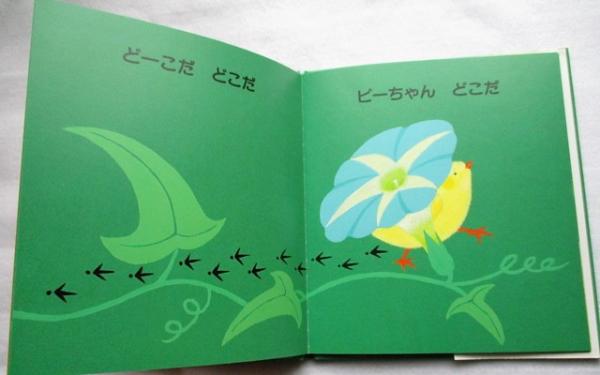 どーこだ どこだ
ピーちゃん どこだ